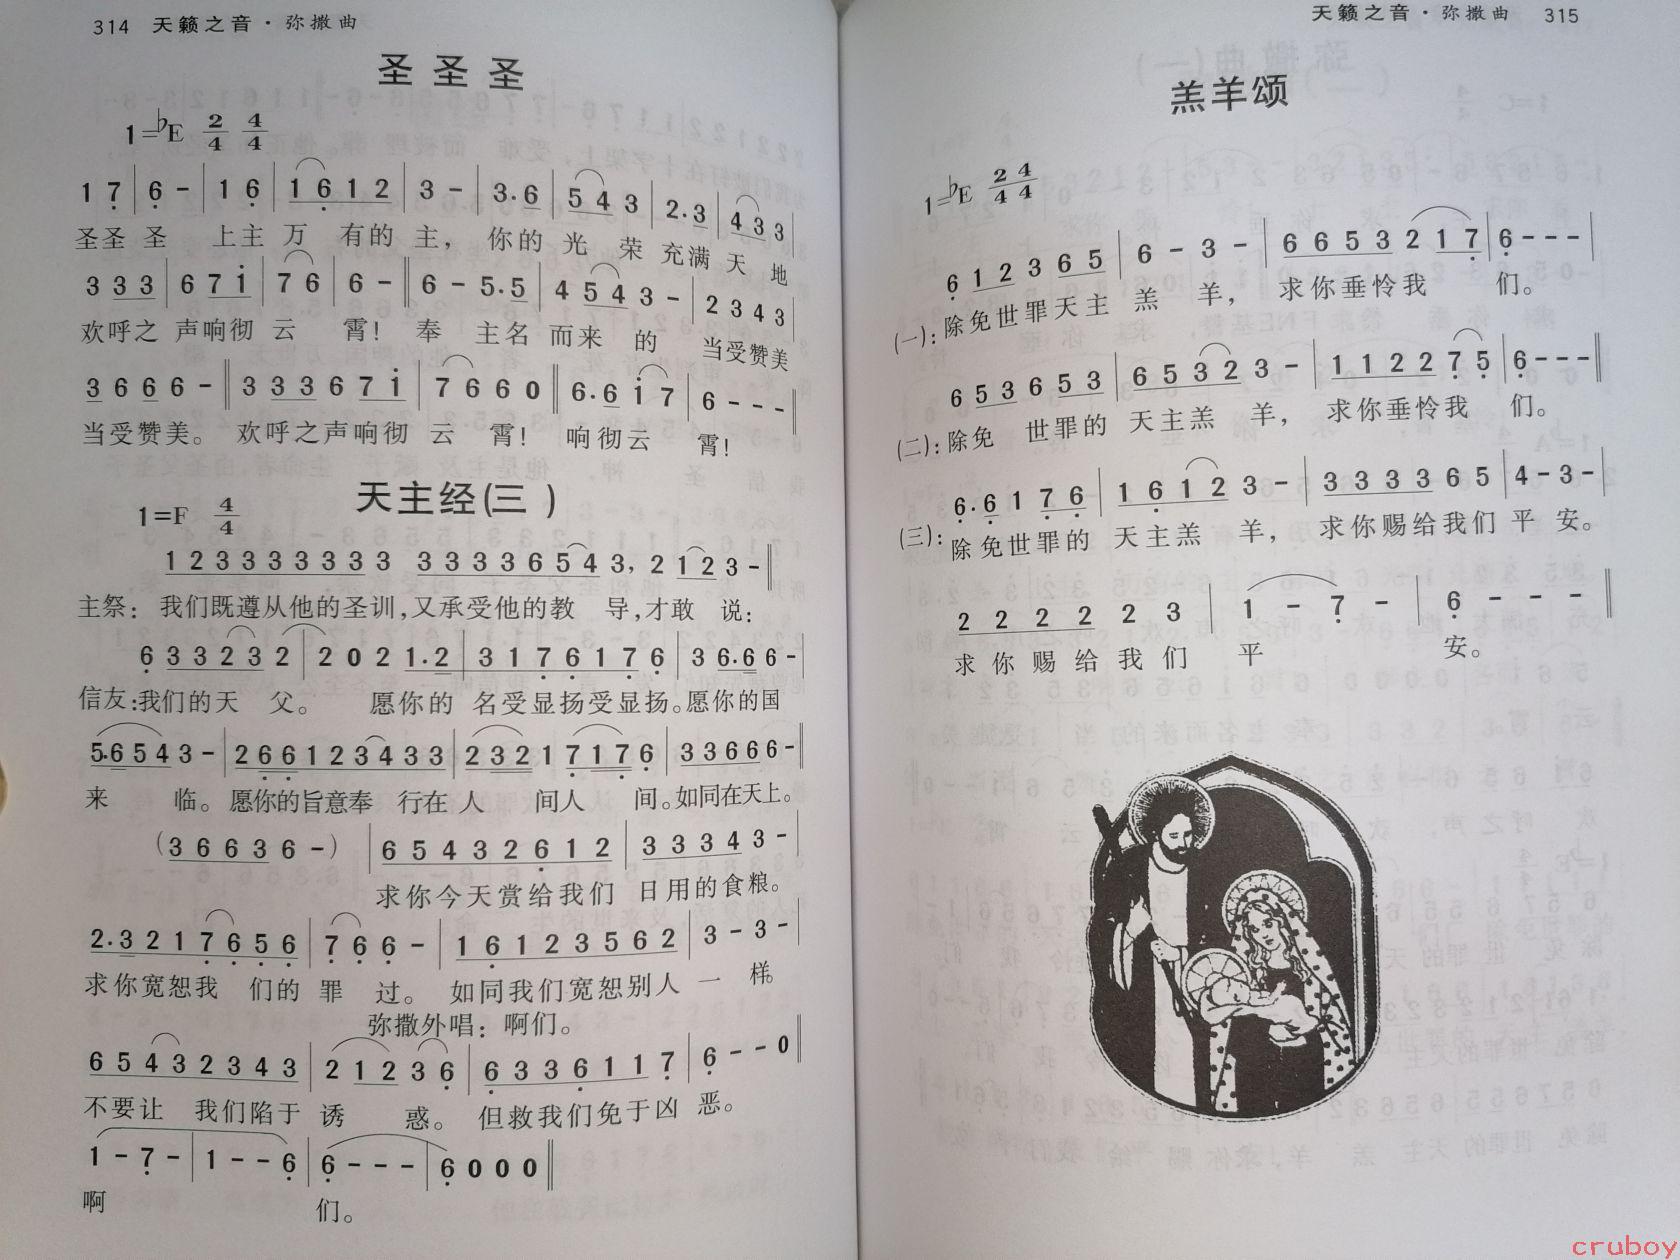 314 天籁之音·弥撒曲
圣圣圣
1=♭E 2/4 4/4
1 7 | 6 - | 1 6 | 1 6 1 2 | 3 - | 3.6 | 5 4 3 | 2.3 | 4 3 3 |
圣圣 圣 上主 万 有的 主， 你的 光 荣 充满 天 地
3 3 3 | 6 7 1 | 7 6 | 6 - ‖ 6 - 5.5 | 4 5 4 3 - | 2 3 4 3 |
欢呼之 声响彻 云 霄！ 奉 主名 而来 的 当受赞美
3 6 6 6 - ‖ 3 3 3 6 7 1 | 7 6 6 0 ‖ 6.6 1 7 | 6 - - - ‖
当受赞美。 欢呼之声响彻 云 霄！ 响彻云 霄！
天主经(三)
1=F 4/4
1 2 3 3 3 3 3 3 3 3 3 3 3 3 6 5 4 3, 2 1 2 3 - ‖
主祭：我们既遵从他的圣训,又承受他的教 导,才敢 说：
6 3 3 2 3 2 | 2 0 2 1.2 | 3 1 7 6 1 7 6 | 3 6.6 6 - |
信友:我们的天 父。 愿你的 名受显扬受显扬。愿你的国
5.6 5 4 3 - | 2 6 6 1 2 3 4 3 3 | 2 3 2 1 7 1 7 6 | 3 3 6 6 6 - ‖
来 临。愿你的旨意奉 行在 人 间人 间。如同在天上。
(3 6 6 3 6 -) | 6 5 4 3 2 6 1 2 | 3 3 3 4 3 - |
求你今天赏给我们 日用的食粮。
2.3 2 1 7 6 5 6 | 7 6 6 - | 1 6 1 2 3 5 6 2 | 3 - 3 - |
求你宽恕我 们的 罪 过。 如同我们宽恕别人 一 样。
弥撒外唱：啊们。
6 5 4 3 2 3 4 3 | 2 1 2 3 6 | 6 3 3 6 1 1 7 | 6 - - 0 ‖
不要让 我们陷于 诱 惑。 但救我们免于凶 恶。
1 - 7 - | 1 - - 6 | 6 - - - | 6 0 0 0 ‖
啊 们。
天籁之音·弥撒曲 315
羔羊颂
1=♭E 2/4 4/4
6 1 2 3 6 5 | 6 - 3 - | 6 6 5 3 2 1 7 | 6 - - - |
(一)：除免世罪天主 羔 羊， 求你垂怜我 们。
6 5 3 6 5 3 | 6 5 3 2 3 - | 1 1 2 2 7 5 | 6 - - - ‖
(二)：除免 世罪的 天主羔 羊， 求你垂怜我 们。
6.6 1 7 6 | 1 6 1 2 3 - | 3 3 3 3 6 5 | 4 - 3 - |
(三)：除免世罪的 天主羔 羊， 求你赐给我们 平 安。
2 2 2 2 2 3 | 1 - 7 - | 6 - - - ‖
求你赐给我们 平 安。
cruboy